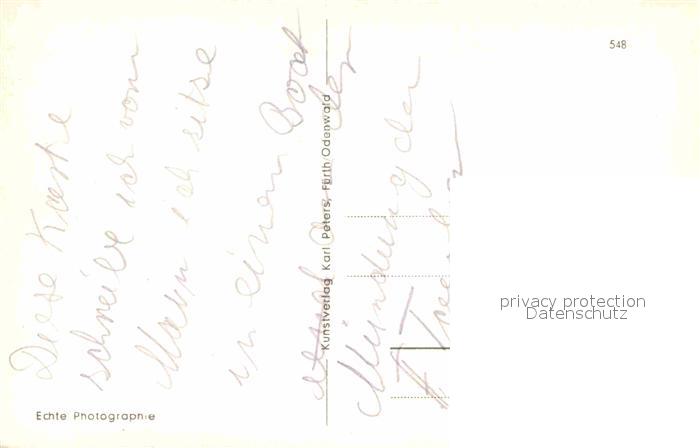 Diese Karte
schreibe ich vom
Main ich sitze
in einem Boot
an der
Mündung der
548
Kunstverlag Karl Peters, Fürth/Odenwald
Echte Photographie
privacy protection
Datenschutz